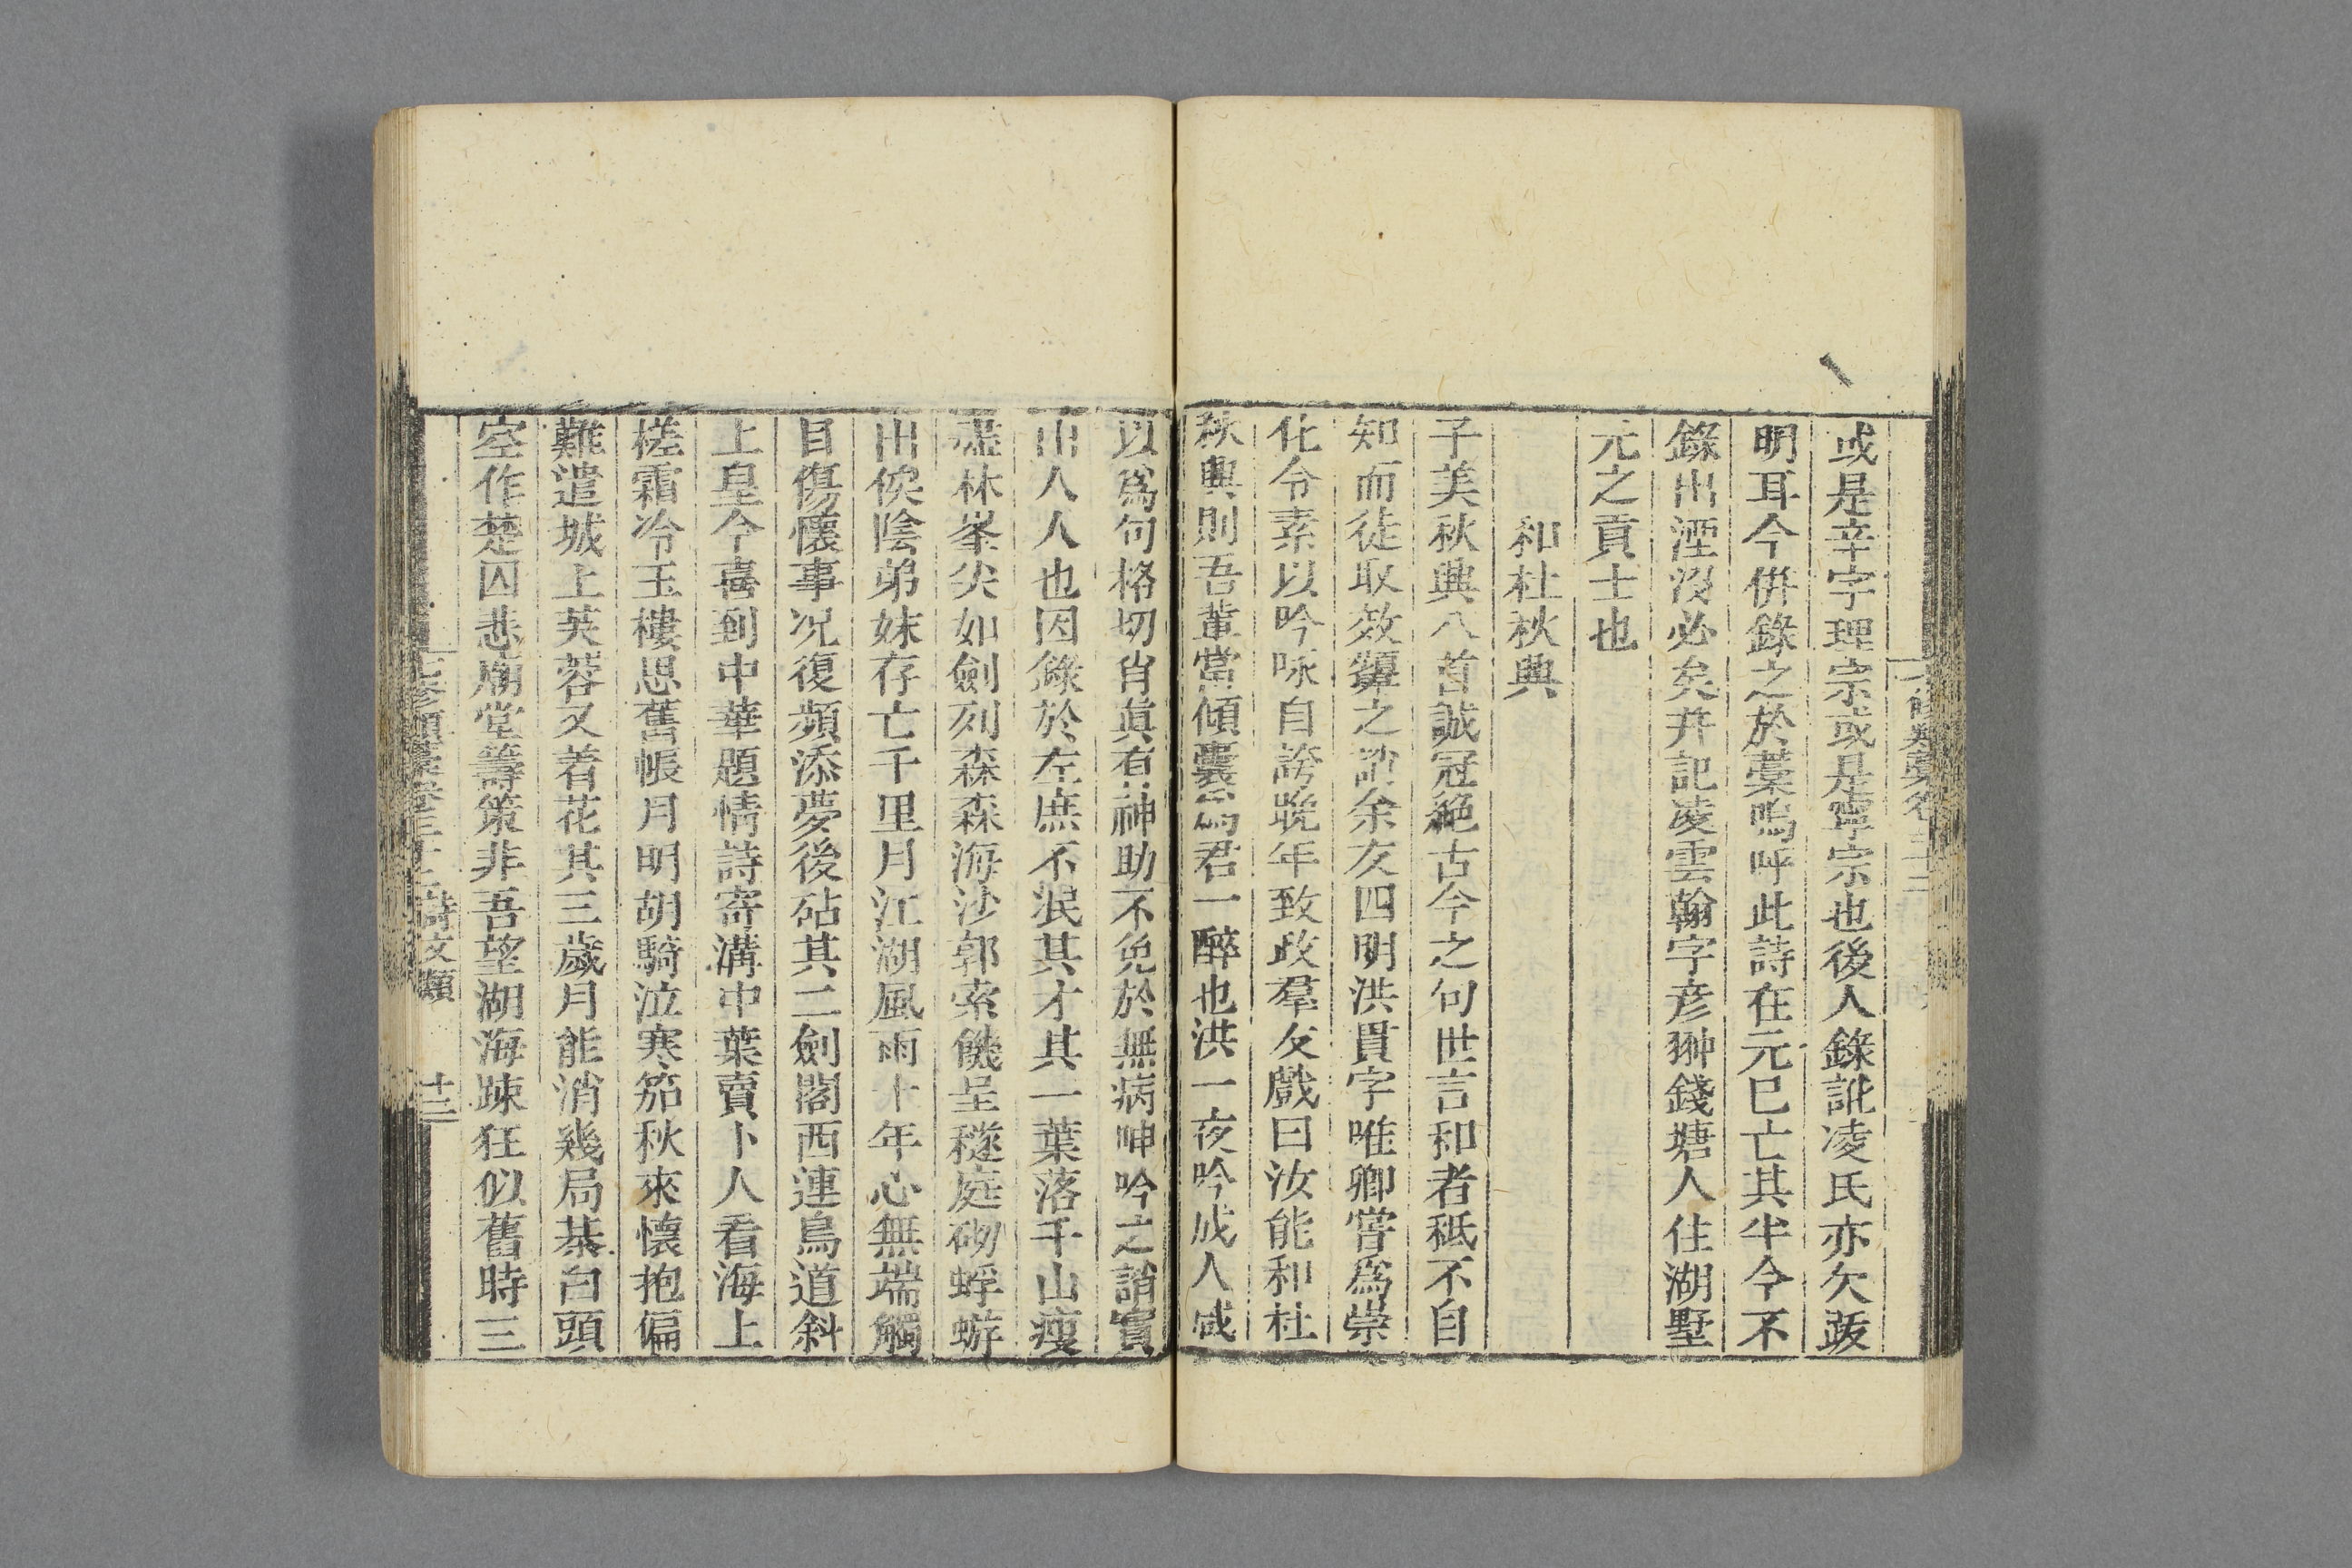 或是辛字理宗或是寧宗也後人錄訛凌氏亦欠䟦
明耳今併錄之於藁嗚呼此詩在元已亡其半今不
錄出湮沒必矣并記凌雲翰字彦翀錢塘人住湖墅
元之貢士也
和杜秋興
子美秋興八首誠冠絶古今之句世言和者秪不自
知而徒取效顰之誚余友四明洪貫字唯卿嘗爲崇
化令素以吟咏自誇晩年致政羣友戲曰汝能和杜
秋興則吾輩當傾囊爲君一醉也洪一夜吟成人咸
以爲句格切肖眞有神助不免於無病呻吟之誚實
出人人也因錄於左庶不泯其才其一葉落千山瘦
盡林峯尖如劍列森森海沙郭索饑呈穟庭砌蜉蝣
出俟陰弟妹存亡千里月江湖風雨十年心無端觸
目傷懷事况復頻添夢後砧其二劍閣西連鳥道斜
上皇今喜到中華題情詩寄溝中葉賣卜人看海上
槎霜冷玉樓思舊帳月明胡騎泣寒笳秋來懷抱偏
難遣城上芙蓉又着花其三歲月能消幾局棊白頭
空作楚囚悲廟堂籌策非吾望湖海踈狂似舊時三
七修類藁卷三十三 詩文類 十三